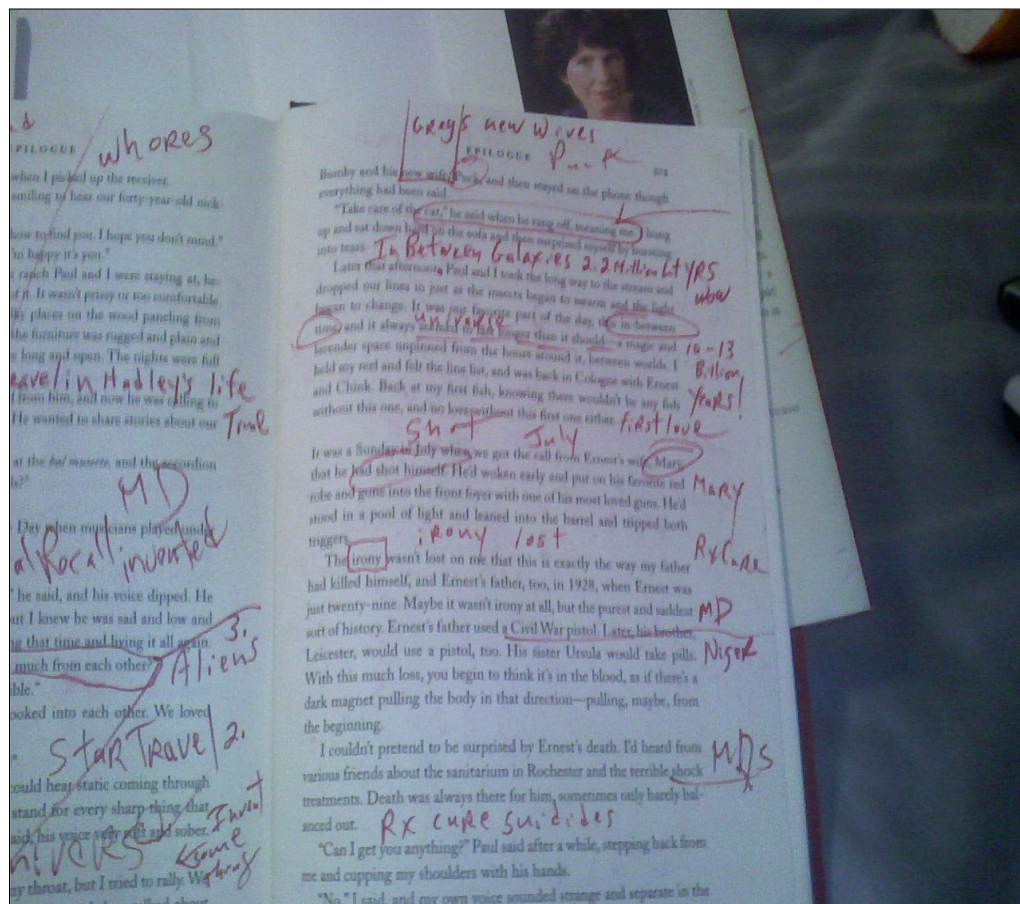 whores
EPILOGUE
when I picked up the receiver.
smiling to hear our forty-year-old nick-
how to find you. I hope you don't mind."
'm happy it's you."
a ranch Paul and I were staying at, he
of it. It wasn't prissy or too comfortable.
places on the wood paneling from
the furniture was rugged and plain and
long and open. The nights were full
in Hadley's life
from him, and now he was calling to
He wanted to share stories about our
Time
at the bal musette, and the accordion
MD
Day when musicians played under
invented
he said, and his voice dipped. He
ut I knew he was sad and low and
g that time and living it all again.
3.
much from each other?"
Aliens
ble."
ooked into each other. We loved
Star Travel 2.
could hear static coming through
stand for every sharp thing that
said, his voice very soft and sober.
Invent
some
thing
my throat, but I tried to rally. We
Greg's new wives
EPILOGUE
P...k
Bumby and his new wife, Puck, and then stayed on the phone though
everything had been said.
"Take care of the cat," he said when he rang off, meaning me. I hung
up and sat down hard on the sofa and then surprised myself by bursting
into tears.
In Between Galaxies 2.2 Million Lt YRS
Later that afternoon, Paul and I took the long way to the stream and
dropped our lines in just as the insects began to swarm and the light
began to change. It was our favorite part of the day, this in-between
universe
time, and it always seemed to last longer than it should—a magic and
10-13
lavender space unpinned from the hours around it, between worlds. I
Billion
held my reel and felt the line list, and was back in Cologne with Ernest
and Chink. Back at my first fish, knowing there wouldn't be any fish
Years!
without this one, and no love without this first one either.
first love
Shot July
It was a Sunday in July when we got the call from Ernest's wife, Mary,
that he had shot himself. He'd woken early and put on his favorite red
Mary
robe and gone into the front foyer with one of his most loved guns. He'd
stood in a pool of light and leaned into the barrel and tripped both
triggers.
irony lost
Rx Cure
The irony wasn't lost on me that this is exactly the way my father
had killed himself, and Ernest's father, too, in 1928, when Ernest was
just twenty-nine. Maybe it wasn't irony at all, but the purest and saddest
MD
sort of history. Ernest's father used a Civil War pistol. Later, his brother,
Leicester, would use a pistol, too. His sister Ursula would take pills.
Niger
With this much loss, you begin to think it's in the blood, as if there's a
dark magnet pulling the body in that direction—pulling, maybe, from
the beginning.
I couldn't pretend to be surprised by Ernest's death. I'd heard from
MDs
various friends about the sanitarium in Rochester and the terrible shock
treatments. Death was always there for him, sometimes only barely bal-
anced out.
Rx cure suidides
"Can I get you anything?" Paul said after a while, stepping back from
me and cupping my shoulders with his hands.
"No," I said, and my own voice sounded strange and separate in the